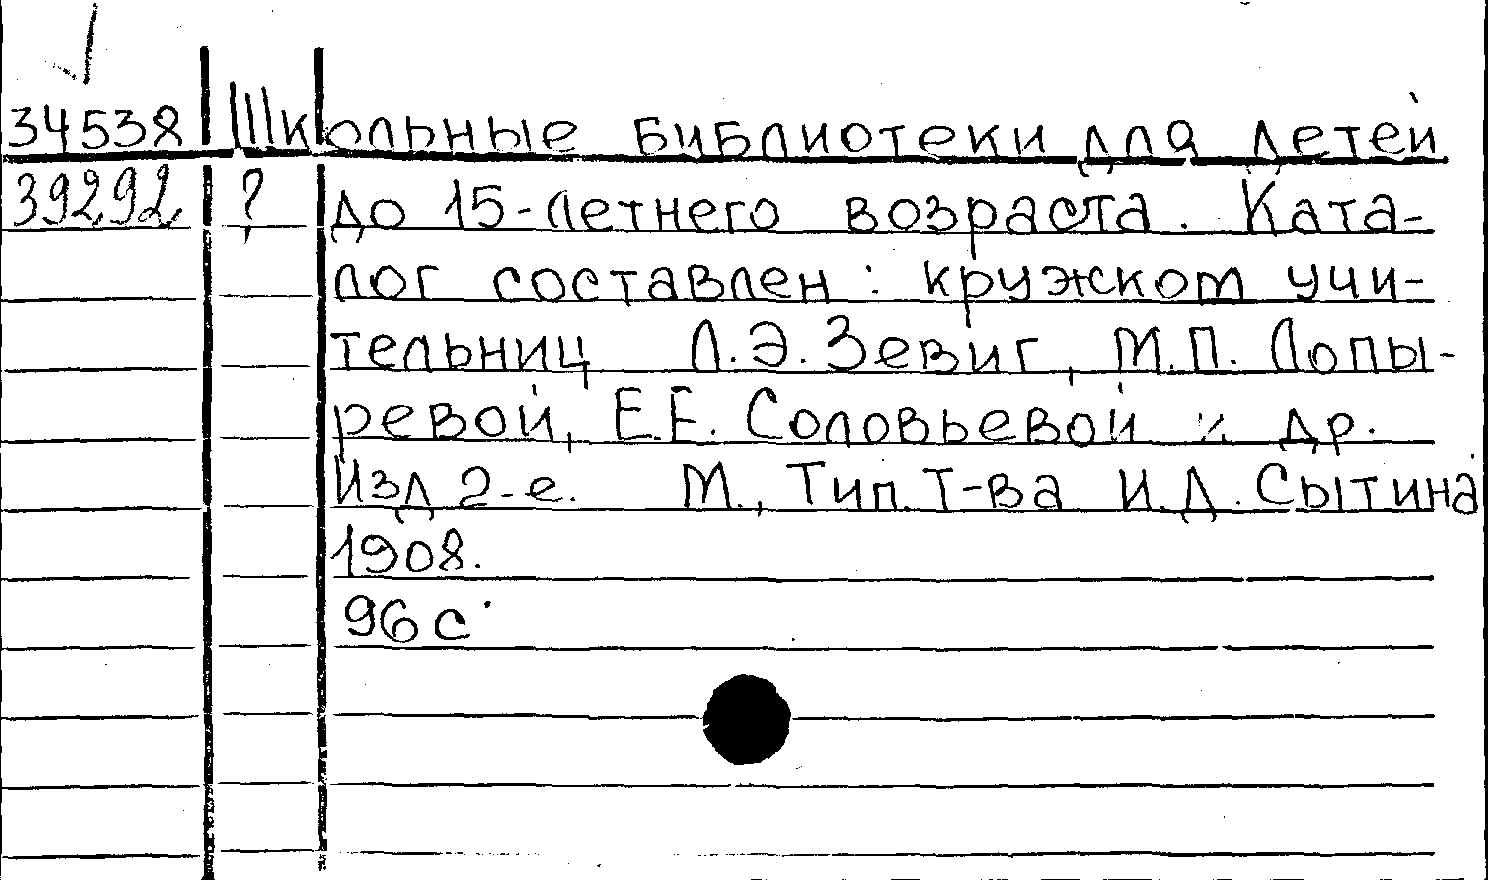 34538 Школьные библиотеки для детей
39292 ? до 15-летнего возраста. Ката-
лог составлен: кружком учи-
тельниц Л.Э. Зевиг, М.П. Лопы-
ревой, Е.Е. Соловьевой и др.
Изд 2-е. М., Тип. Т-ва И.Д. Сытина
1908.
96 с.